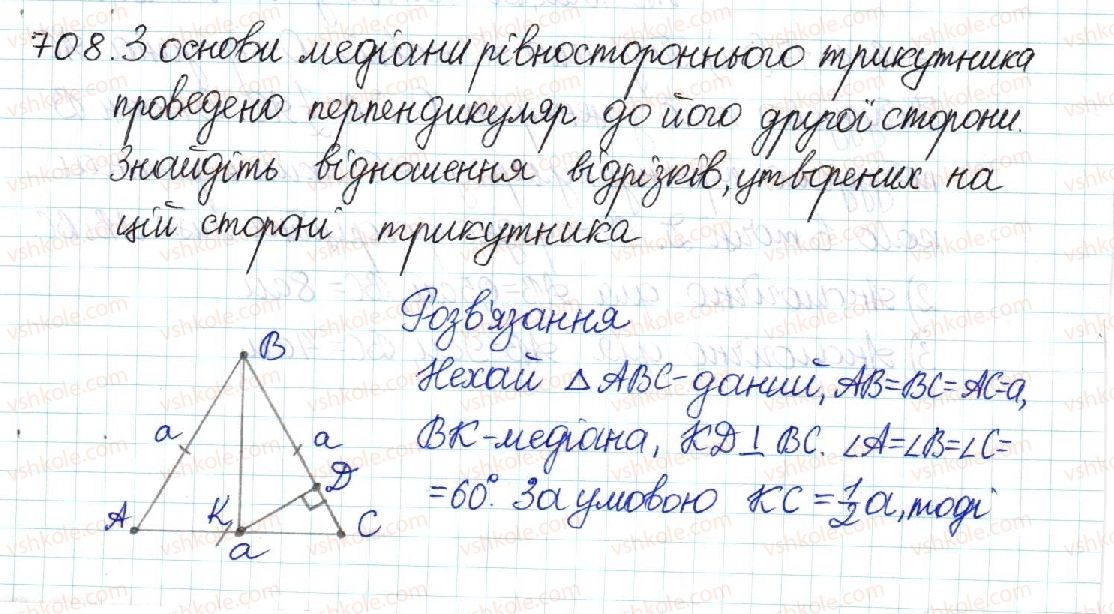 708. З основи медіани рівностороннього трикутника
проведено перпендикуляр до його другої сторони.
Знайдіть відношення відрізків, утворених на
цій стороні трикутника
Розв'язання
Нехай △ABC-даний, AB=BC=AC=a,
BK-медіана, KD⊥BC. ∠A=∠B=∠C=
=60°. За умовою KC=½a, тоді
B
a
a
D
A
K
C
a
vshkole.com